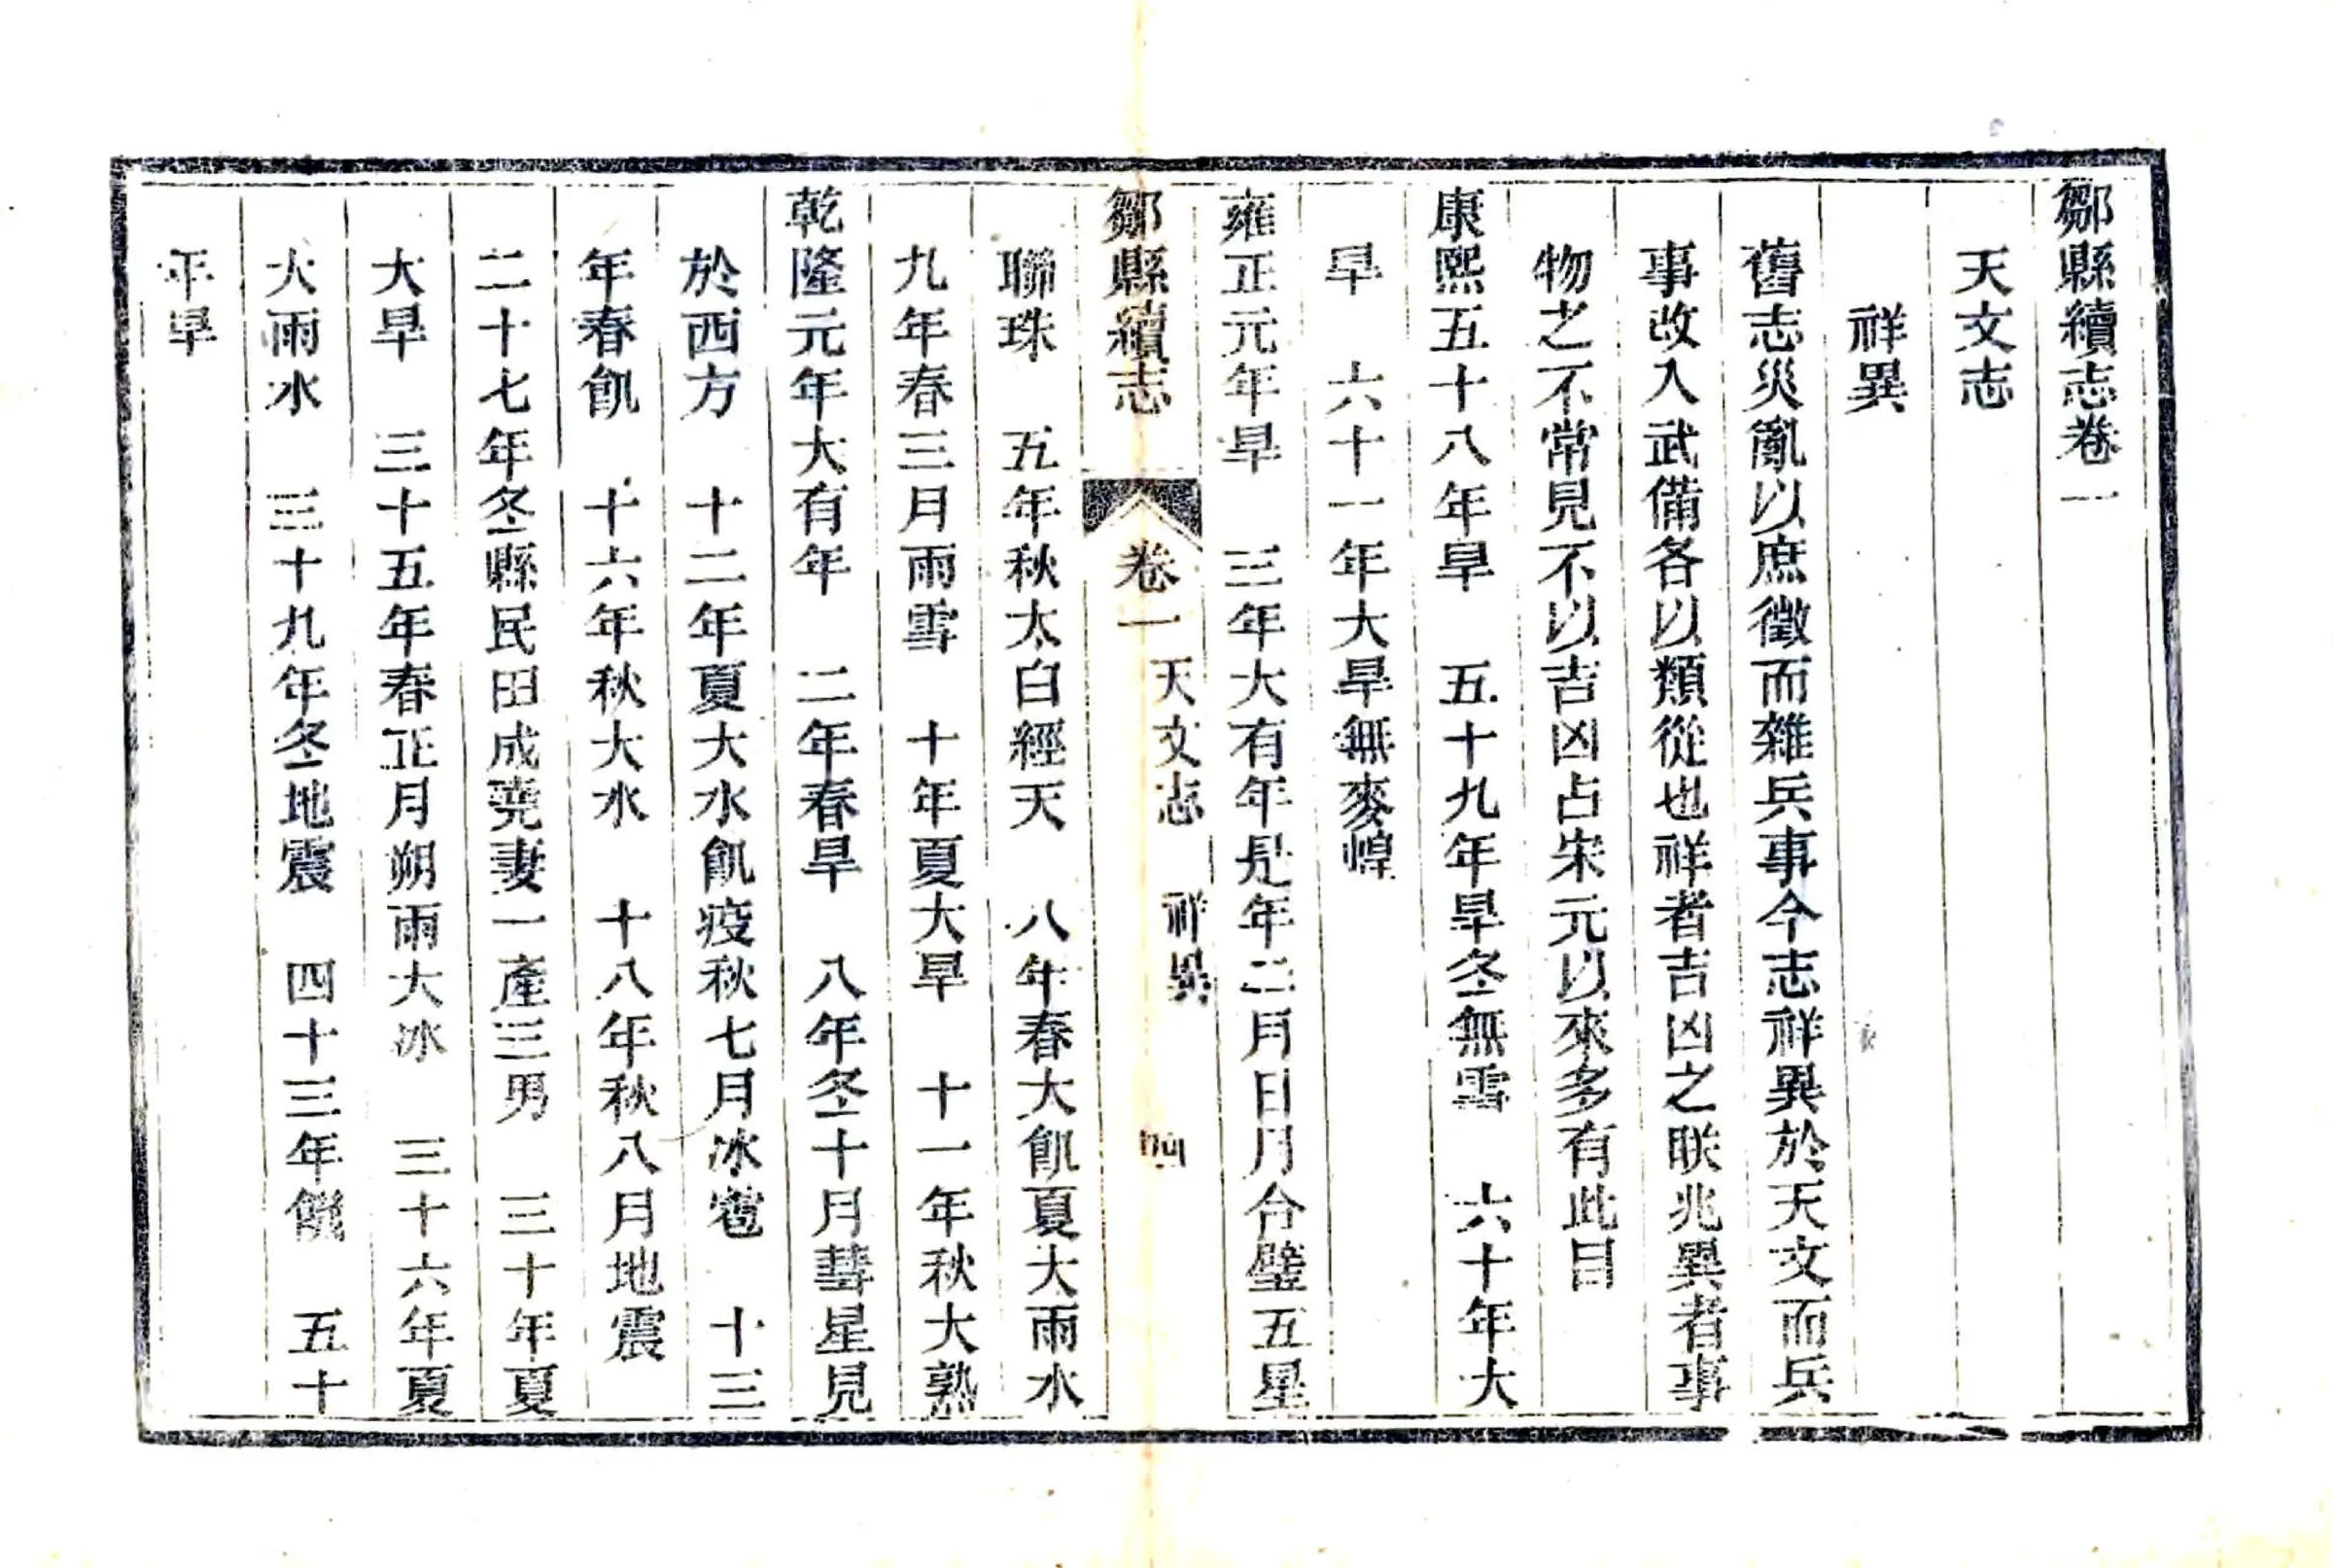 鄒縣續志卷一
天文志
祥異
舊志災亂以庶徵而雜兵事今志祥異於天文而兵
事改入武備各以類從也祥者吉凶之眹兆異者事
物之不常見不以吉凶占宋元以來多有此目
康熙五十八年旱　五十九年旱冬無雪　六十年大
旱　六十一年大旱無麥蝗
雍正元年旱　三年大有年是年二月日月合璧五星
鄒縣續志　卷一　天文志　祥異
聯珠　五年秋太白經天　八年春大飢夏大雨水
九年春三月雨雪　十年夏大旱　十一年秋大熟
乾隆元年大有年　二年春旱　八年冬十月彗星見
於西方　十二年夏大水飢疫秋七月冰雹　十三
年春飢　十六年秋大水　十八年秋八月地震
二十七年冬縣民田成堯妻一產三男　三十年夏
大旱　三十五年春正月朔雨大冰　三十六年夏
大雨水　三十九年冬地震　四十三年饑　五十
年旱